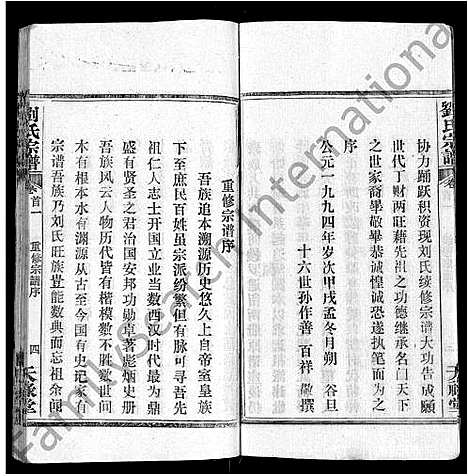 劉氏宗譜
卷
协力踊跃积资现刘氏续修宗谱大功告成愿
世代丁财两旺藉先祖之功德继承名门天下
之世家裔毕敬毕恭诚惶诚恐遂执笔而为之
序
公元一九九四年岁次甲戌孟冬月朔 谷旦
十六世孙作善 百祥 敬撰
重修宗谱序
吾族追本溯源历史悠久上自帝室皇族
下至庶民百姓虽宗派纷繁但有脉可寻吾先
祖仁人志士开国立业当数西汉时代最为鼎
盛有贤圣之君治国安邦功勋卓著彪炳史册
吾族风云人物历代皆有楷模数不胜数世间一
木有根本水有渊源从古至今国有史记家有
宗谱吾族乃刘氏旺族岂能数典而忘祖余闻
劉氏宗譜
卷首一
重修宗谱序
四
天祿堂
FamilySearch International